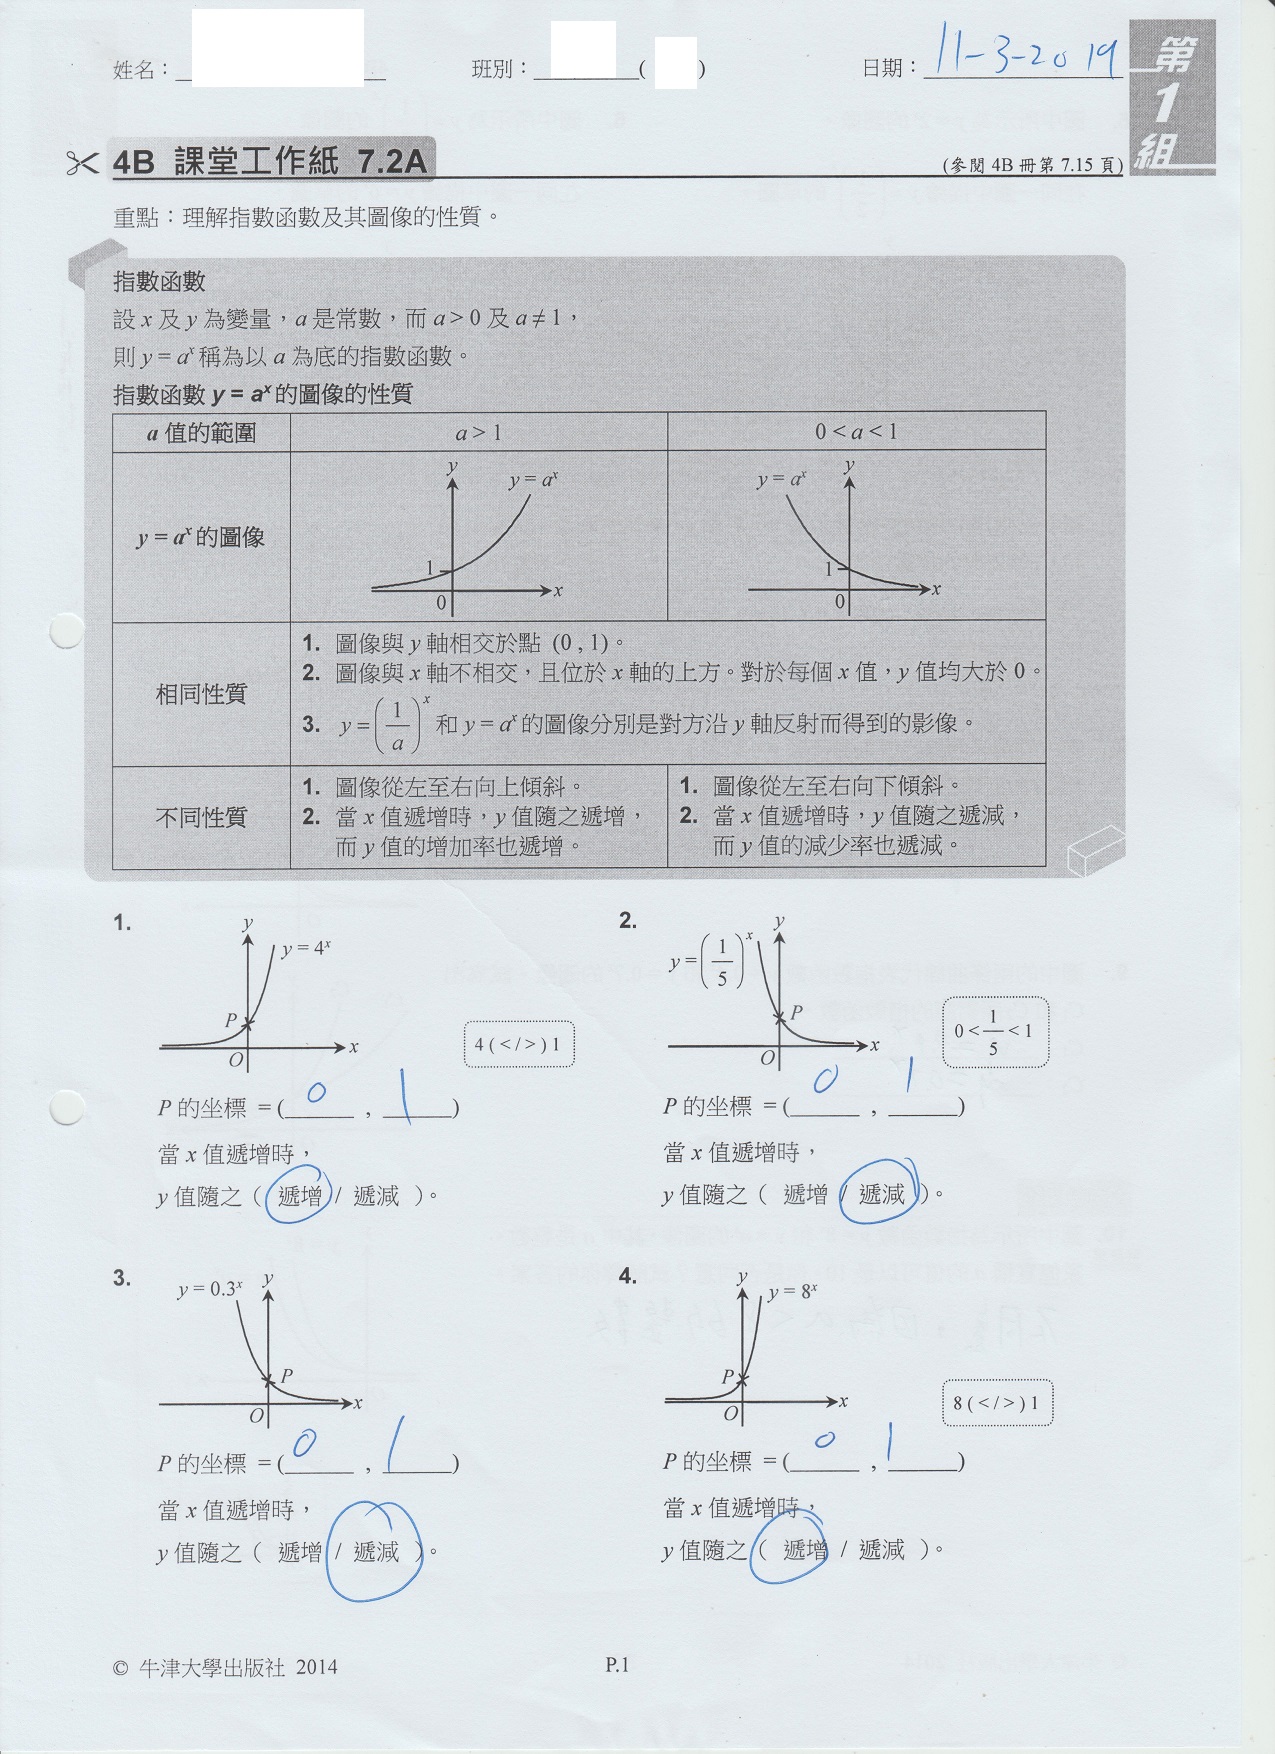 姓名：
班別： ( )
日期： 11-3-2019
第1組
4B 課堂工作紙 7.2A
(參閱 4B 冊第 7.15 頁)
重點：理解指數函數及其圖像的性質。
指數函數
設 x 及 y 為變量，a 是常數，而 a > 0 及 a ≠ 1，
則 y = aˣ 稱為以 a 為底的指數函數。
指數函數 y = aˣ 的圖像的性質
a 值的範圍 a > 1 0 < a < 1
y = aˣ 的圖像
y y = aˣ 1 0 x
y = aˣ y 1 0 x
相同性質
1. 圖像與 y 軸相交於點 (0 , 1)。
2. 圖像與 x 軸不相交，且位於 x 軸的上方。對於每個 x 值，y 值均大於 0。
3. y = (1/a)ˣ 和 y = aˣ 的圖像分別是對方沿 y 軸反射而得到的影像。
不同性質
1. 圖像從左至右向上傾斜。
2. 當 x 值遞增時，y 值隨之遞增，
而 y 值的增加率也遞增。
1. 圖像從左至右向下傾斜。
2. 當 x 值遞增時，y 值隨之遞減，
而 y 值的減少率也遞減。
1.
y y = 4ˣ P O x
4 ( < / > ) 1
P 的坐標 = ( 0 , 1 )
當 x 值遞增時，
y 值隨之（ 遞增 / 遞減 ）。
2.
y = (1/5)ˣ y P O x
0 < 1/5 < 1
P 的坐標 = ( 0 , 1 )
當 x 值遞增時，
y 值隨之（ 遞增 / 遞減 ）。
3.
y = 0.3ˣ y P O x
P 的坐標 = ( 0 , 1 )
當 x 值遞增時，
y 值隨之（ 遞增 / 遞減 ）。
4.
y y = 8ˣ P O x
8 ( < / > ) 1
P 的坐標 = ( 0 , 1 )
當 x 值遞增時，
y 值隨之（ 遞增 / 遞減 ）。
© 牛津大學出版社 2014
P.1